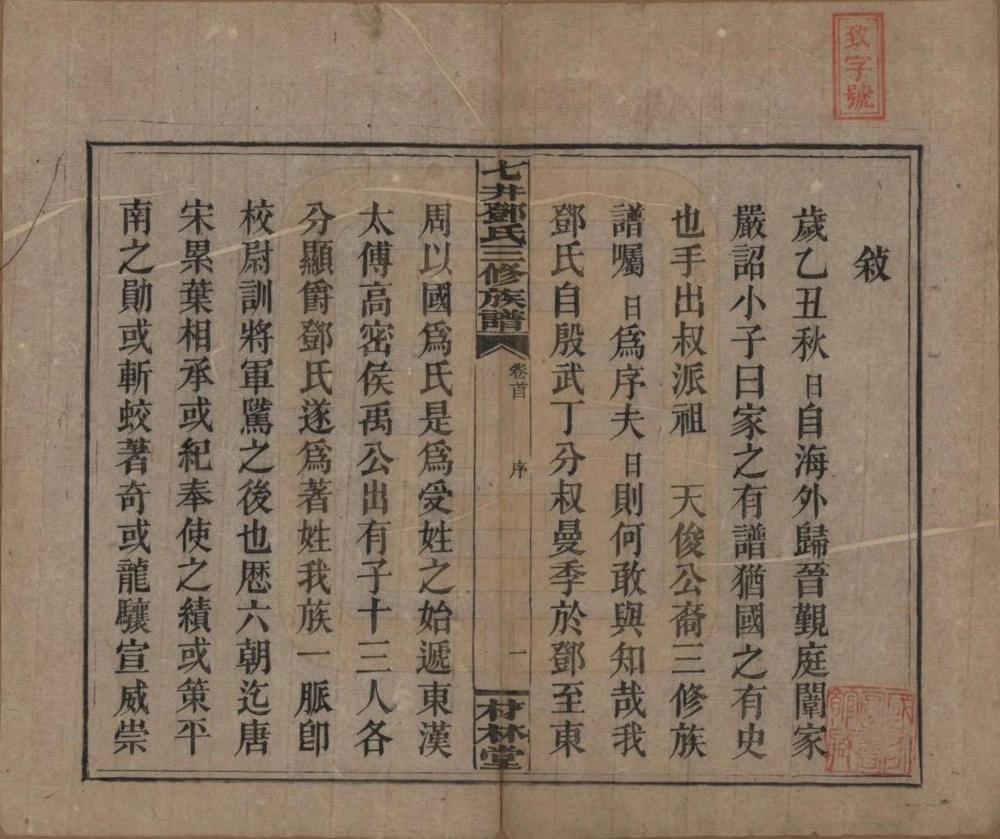 致字號
敘
歲乙丑秋日自海外歸晉覲庭闈家
嚴詔小子曰家之有譜猶國之有史
也手出叔派祖 天俊公裔三修族
譜囑日爲序夫日則何敢與知哉我
鄧氏自殷武丁分叔曼季於鄧至東
七井鄧氏三修族譜
卷首
序
一
材林堂
周以國爲氏是爲受姓之始遞東漢
太傅高密侯禹公出有子十三人各
分顯爵鄧氏遂爲著姓我族一脈卽
校尉訓將軍騭之後也厯六朝迄唐
宋累葉相承或紀奉使之績或策平
南之勛或斬蛟著奇或龍驤宣威崇